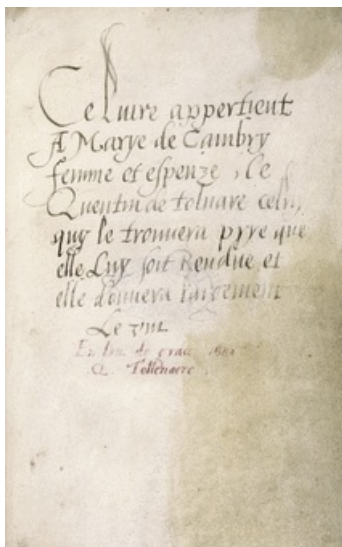 Ce Livre appertient
A Marye de Cambry
femme et espeuze, de
Quentin de
quy le trouvera prye que
elle Luy soit Rendue et
elle donnera largement
Le vin
En l'an de grace
Q. Tollenaere